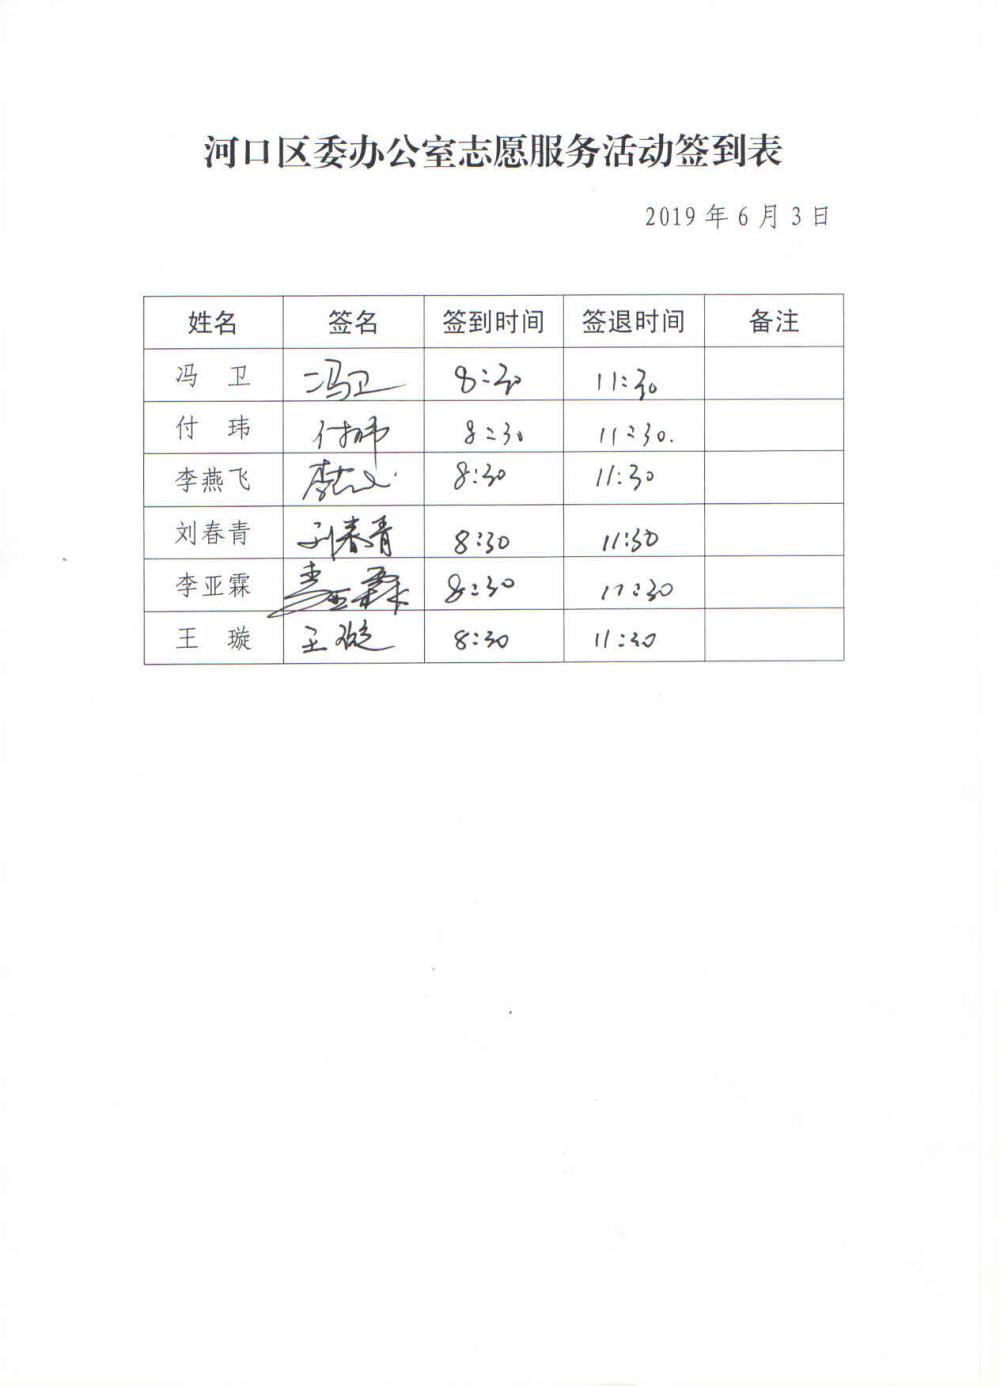 河口区委办公室志愿服务活动签到表
2019年6月3日
姓名 签名 签到时间 签退时间 备注
冯卫 冯卫 8:30 11:30
付玮 付玮 8:30 11:30.
李燕飞 8:30 11:30
刘春青 刘春青 8:30 11:30
李亚霖 李亚霖 8:30 11:30
王璇 王璇 8:30 11:30